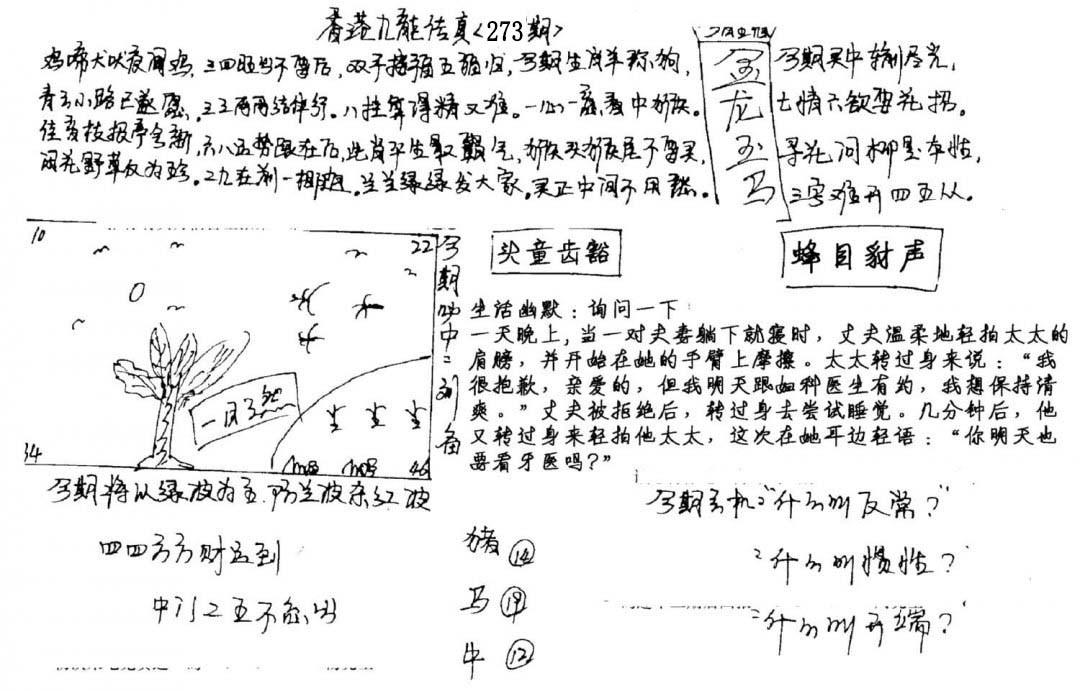 香港九龙传真<273期>
鸡啼犬吠夜闻鸡,三四旺当不要后,双子摇福五福归,今期生肖羊称狗,
青云小路已遂愿,三三两两结伴行.八挂算得精又准。一心一意表中猴.
佳音枝报声全新,六八五势跟在后,此肖平生最 气,猴头猴尾不要买,
闲花野草仅为珍.二九在前一相 .兰兰绿绿发大家.买正中间不用愁.
金龙玉马
今期买中转别尽光,
七情六欲要花招.
寻花问柳是本性,
三字难开四五从.
10
22
34
46
一目了然
今期必中二刺角
头童齿豁
蜂目豺声
生活幽默:询问一下
一天晚上,当一对夫妻躺下就寝时,丈夫温柔地轻拍太太的
肩膀,并开始在她的手臂上摩擦。太太转过身来说:“我
很抱歉,亲爱的,但我明天跟妇科医生有约,我想保持清
爽。”丈夫被拒绝后,转过身去尝试睡觉。几分钟后,他
又转过身来轻拍他太太,这次在她耳边轻语:“你明天也
要看牙医吗?”
今期将以绿波为主.防兰波杀红波
四四方方财运到
中行二五不能出
猪 ⑭
马 ⑲
牛 ⑫
今期玄机“什么叫反常?”
“什么叫惯性?”
“什么叫开端?”